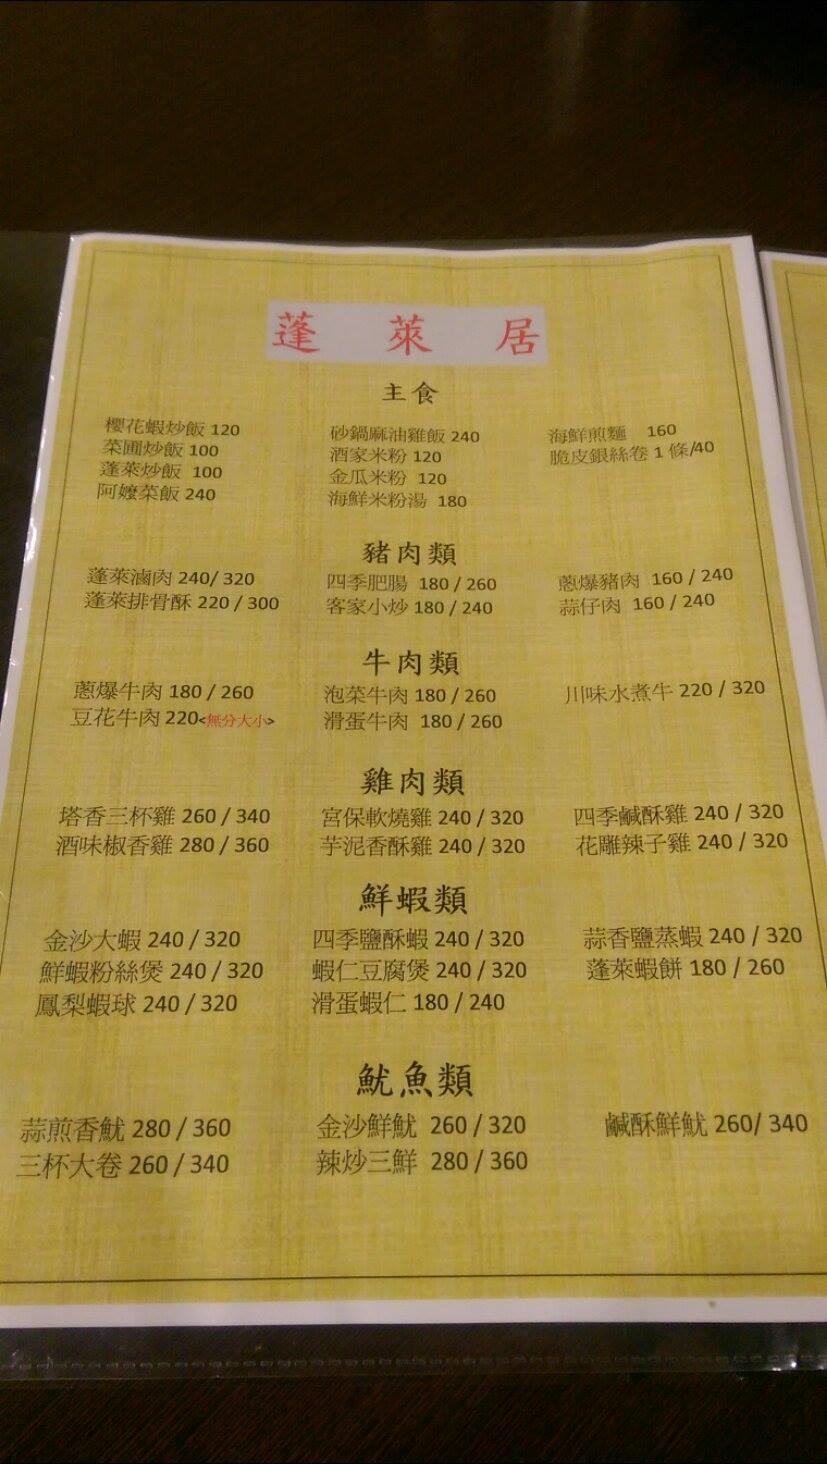 蓬萊居
主食
櫻花蝦炒飯 120 砂鍋麻油雞飯 240 海鮮煎麵 160
菜圃炒飯 100 酒家米粉 120 脆皮銀絲卷 1 條/40
蓬萊炒飯 100 金瓜米粉 120
阿嬤菜飯 240 海鮮米粉湯 180
豬肉類
蓬萊滷肉 240/ 320 四季肥腸 180 / 260 蔥爆豬肉 160 / 240
蓬萊排骨酥 220 / 300 客家小炒 180 / 240 蒜仔肉 160 / 240
牛肉類
蔥爆牛肉 180 / 260 泡菜牛肉 180 / 260 川味水煮牛 220 / 320
豆花牛肉 220<無分大小> 滑蛋牛肉 180 / 260
雞肉類
塔香三杯雞 260 / 340 宮保軟燒雞 240 / 320 四季鹹酥雞 240 / 320
酒味椒香雞 280 / 360 芋泥香酥雞 240 / 320 花雕辣子雞 240 / 320
鮮蝦類
金沙大蝦 240 / 320 四季鹽酥蝦 240 / 320 蒜香鹽蒸蝦 240 / 320
鮮蝦粉絲煲 240 / 320 蝦仁豆腐煲 240 / 320 蓬萊蝦餅 180 / 260
鳳梨蝦球 240 / 320 滑蛋蝦仁 180 / 240
魷魚類
蒜煎香魷 280 / 360 金沙鮮魷 260 / 320 鹹酥鮮魷 260/ 340
三杯大卷 260 / 340 辣炒三鮮 280 / 360